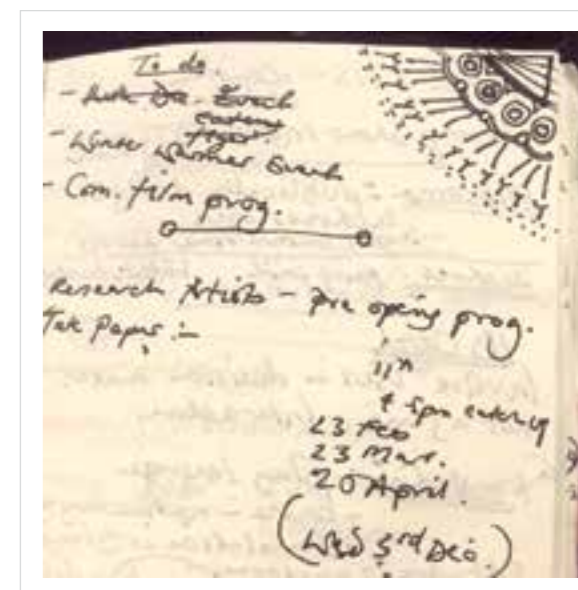 To do.
- Event
- Winter Warmer Event
- Com. film prog.
Research Artists - pre opening prog.
Tate Papers :-
11am
& 5pm catch up
23 Feb
23 Mar.
20 April.
(Wed 3rd Dec.)